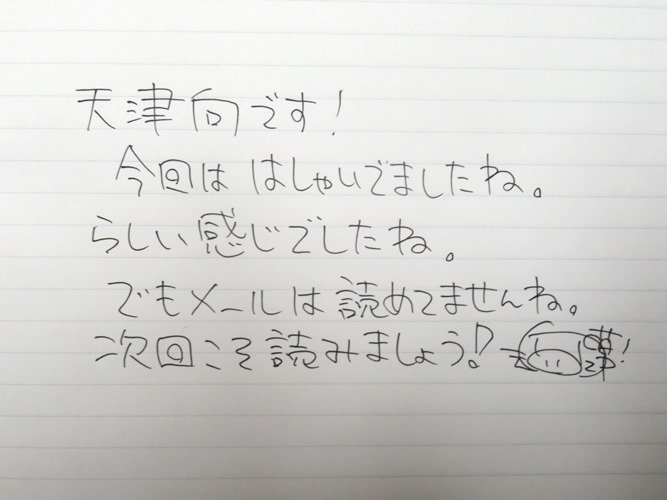 天津向です!
今回は はしゃいでましたね。
らしい感じでしたね。
でもメールは読めてませんね。
次回こそ読みましょう!